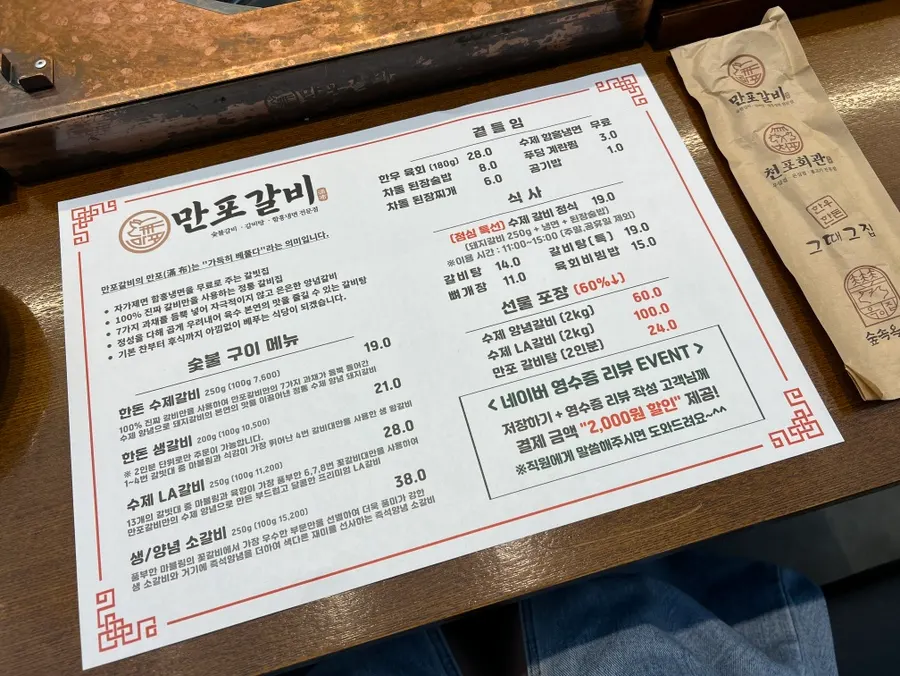 만포갈비
숯불갈비 · 갈비탕 · 함흥냉면 전문점
만포갈비의 만포(滿布)는 "가득히 베풀다"라는 의미입니다.
• 자가제면 함흥냉면을 무료로 주는 갈빗집
• 100% 진짜 갈비만을 사용하는 정통 갈비집
• 7가지 과채를 듬뿍 넣어 자극적이지 않고 은은한 양념갈비
• 정성을 다해 곱게 우려내어 육수 본연의 맛을 즐길 수 있는 갈비탕
• 기본 찬부터 후식까지 아낌없이 베푸는 식당이 되겠습니다.
숯불 구이 메뉴
한돈 수제갈비 250g (100g 7,600) 19.0
100% 진짜 갈비만을 사용하여 만포갈비만의 7가지 과채가 듬뿍 들어간
수제 양념으로 돼지갈비의 본연의 맛을 이끌어낸 정통 수제 양념 돼지갈비
한돈 생갈비 200g (100g 10,500) 21.0
※ 2인분 단위로만 주문이 가능합니다.
1~4번 갈빗대 중 마블링과 식감이 가장 뛰어난 4번 갈비대만을 사용한 생 왕갈비
수제 LA갈비 250g (100g 11,200) 28.0
13개의 갈빗대 중 마블링과 육향이 가장 풍부한 6,7,8번 꽃갈비대만을 사용하여
만포갈비만의 수제 양념으로 만든 부드럽고 달콤한 프리미엄 LA갈비
생/양념 소갈비 250g (100g 15,200) 38.0
풍부한 마블링의 꽃갈비에서 가장 우수한 부분만을 선별하여 더욱 풍미가 강한
생 소갈비와 거기에 즉석양념을 더하여 색다른 재미를 선사하는 즉석양념 소갈비
곁들임
한우 육회 (180g) 28.0 수제 함흥냉면 무료
차돌 된장술밥 8.0 푸딩 계란찜 3.0
차돌 된장찌개 6.0 공기밥 1.0
식사
(점심 특선) 수제 갈비 정식 19.0
(돼지갈비 250g + 냉면 + 된장술밥)
※이용 시간 : 11:00~15:00 (주말,공휴일 제외)
갈비탕 14.0 갈비탕(특) 19.0
뼈개장 11.0 육회비빔밥 15.0
선물 포장 (60%↓)
수제 양념갈비 (2kg) 60.0
수제 LA갈비 (2kg) 100.0
만포 갈비탕 (2인분) 24.0
< 네이버 영수증 리뷰 EVENT >
저장하기 + 영수증 리뷰 작성 고객님께
결제 금액 "2,000원 할인" 제공!
※직원에게 말씀해주시면 도와드려요~^^
만포갈비
천포회관
한우
한돈
그대그집
숲속옥